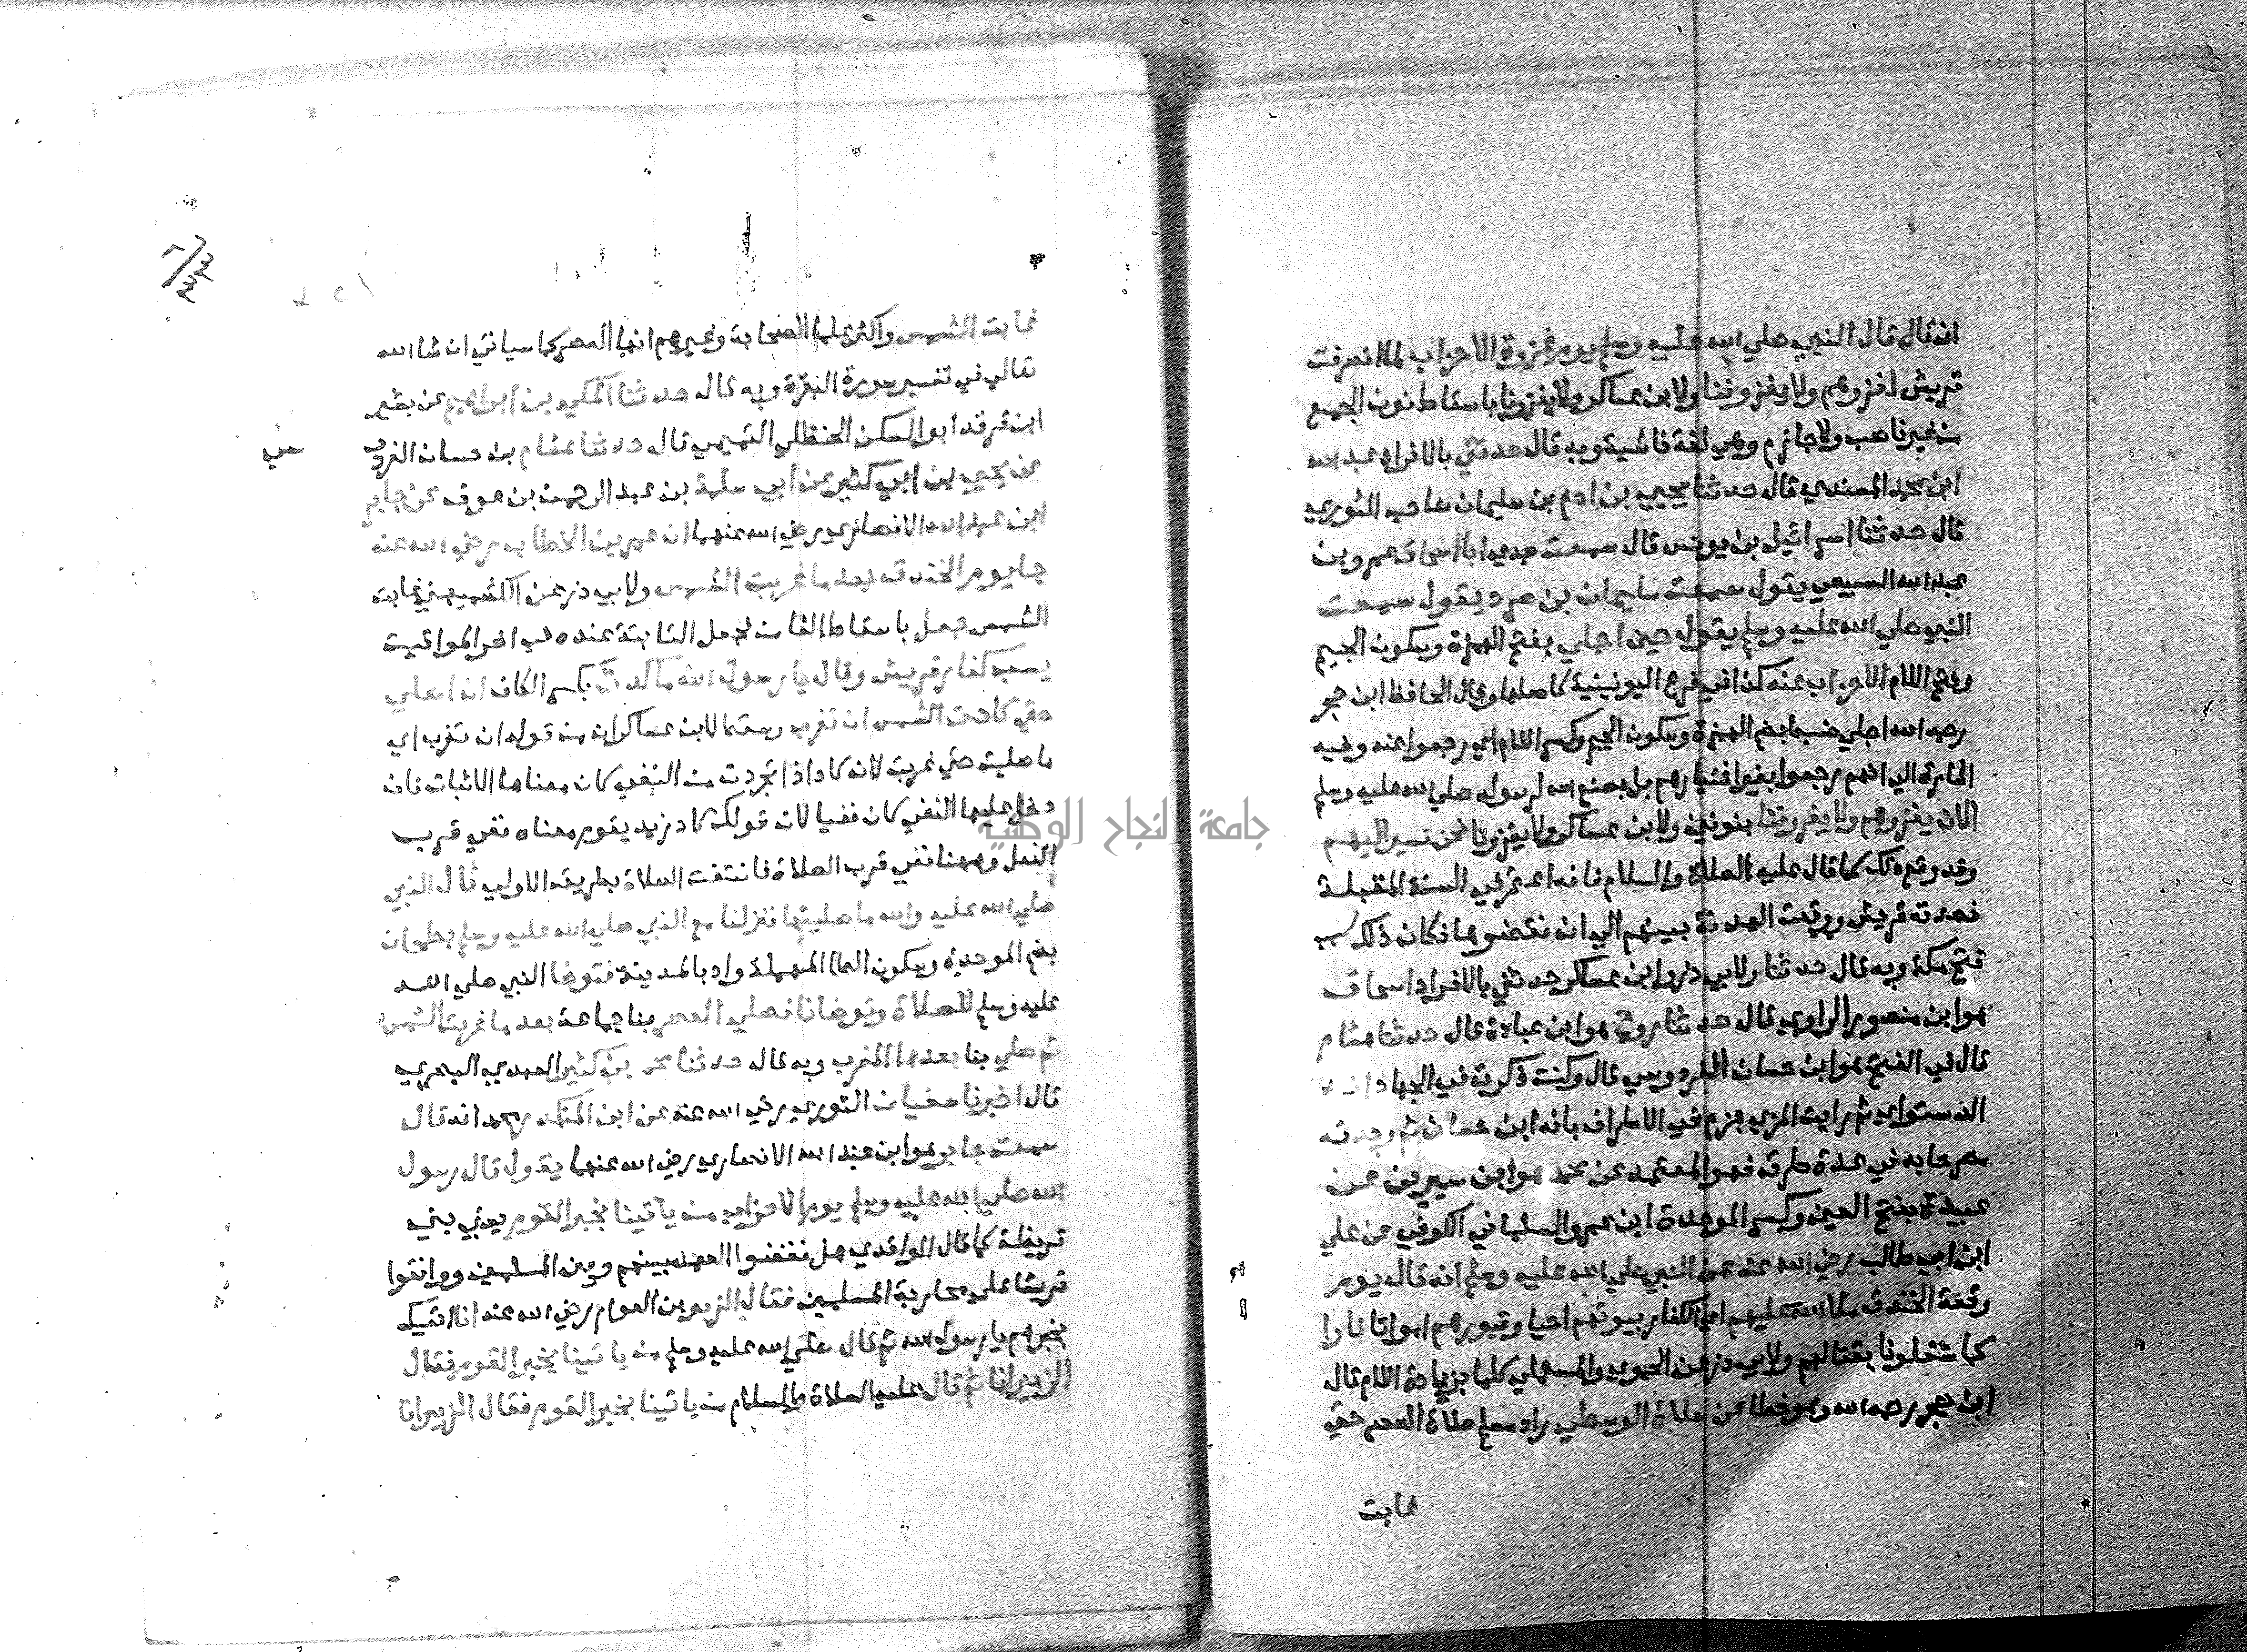 انه قال قال النبي صلي الله عليه وسلم يوم غزوة الاحزاب لما انصرفت
قريش نغزوهم ولا يغزوننا ولابن عساكر ولا يغزونا باسقاط نون الجمع
من غير ناصب ولا جازم وهي لغة فاشية وبه قال حدثني بالافراد عبد الله
ابن محمد المسندي قال حدثنا يحيي بن ادم بن سليمان صاحب الثوري
قال حدثنا اسرائيل بن يونس قال سمعت جدي ابا اسحاق عمرو بن
عبد الله السبيعي يقول سمعت سليمان بن صرد يقول سمعت
النبي صلي الله عليه وسلم يقول حين اجلي بفتح الهمزة وسكون الجيم
وفتح اللام الاحزاب عنه كذا في فرع اليونينية كاصلها وقال الحافظ ابن حجر
رحمه الله اجلي ضبط بضم الهمزة وسكون الجيم وكسر اللام اي رجعوا عنه وفيه
اشارة الي انهم رجعوا بغير اختيارهم بل بصنع الله لرسوله صلي الله عليه وسلم
الان نغزوهم ولا يغزوننا بنونين ولابن عساكر ولا يغزونا نحن نسير اليهم
وقد وقع ذلك كما قال عليه الصلاة والسلام فانه اعتمر في السنة المقبلة
فصدته قريش ووقعت الهدنة بينهم الي ان نقضوها فكان ذلك سبب
فتح مكة وبه قال حدثنا ولابي ذر وابن عساكر حدثني بالافراد اسحاق
هو ابن منصور الراوي قال حدثنا روح هو ابن عبادة قال حدثنا هشام
قال في الفتح هو ابن حسان الفردوسي قال وكنت ذكرت في الجهاد انه
الدستواي ثم رايت المزي جزم في الاطراف بانه ابن حسان ثم وجدته
مصرحا به في عدة طرق فهو المعتمد عن محمد هو ابن سيرين عن
عبيدة بفتح العين وكسر الموحدة ابن عمرو السلماني الكوفي عن علي
ابن ابي طالب رضي الله عنه عن النبي صلي الله عليه وسلم انه قال يوم
وقعة الخندق ملا الله عليهم اي الكفار بيوتهم احيا وقبورهم امواتا نارا
كما شغلونا بقتالهم ولابي ذر عن الحموي والمستملي كلما بزيادة اللام قال
ابن حجر رحمه الله وهو خطا عن صلاة الوسطي زاد مسلم صلاة العصر حتي
غابت
غابت الشمس واكثر علما الصحابة وغيرهم انها العصر كما سياتي ان شا الله
تعالي في تفسير سورة البقرة وبه قال حدثنا المكي بن ابراهيم عن بشير
ابن فرقد ابو السكن الحنظلي التميمي قال حدثنا هشام بن حسان الفردو
سي
عن يحيي بن ابي كثير عن ابي سلمة بن عبد الرحمن بن عوف عن جابر
ابن عبد الله الانصاري رضي الله عنهما ان عمر بن الخطاب رضي الله عنه
جا يوم الخندق بعد ما غربت الشمس ولابي ذر عن الكشميهني غابت
الشمس جعل باسقاط الفا من فجعل الثابتة عنده في اخر المواقيت
يسب كفار قريش وقال يا رسول الله ما كدت بكسر الكاف ان اصلي
حتي كادت الشمس ان تغرب وسقط لابن عساكر ان من قوله ان تغرب اي
ما صليت حتي غربت لان كاد اذا تجردت من النفي كان معناها الاثبات فان
دخل عليها النفي كان نفيا لان قولك كاد زيد يقوم معناه نفي قرب
الفعل وههنا نفي قرب الصلاة فانتفت الصلاة بطريق الاولي قال النبي
صلي الله عليه والله ما صليتها فنزلنا مع النبي صلي الله عليه وسلم بطحان
بضم الموحدة وسكون الطا المهملة واد بالمدينة فتوضا النبي صلي الله
عليه وسلم للصلاة وتوضانا فصلي العصر بنا جماعة بعد ما غربت الشمس
ثم صلي بنا بعدها المغرب وبه قال حدثنا محمد بن كثير العبدي البصري
قال اخبرنا سفيان الثوري رضي الله عنه عن ابن المنكدر محمد انه قال
سمعت جابر هو ابن عبد الله الانصاري رضي الله عنهما يقول قال رسول
الله صلي الله عليه وسلم يوم الاحزاب من ياتينا بخبر القوم يعني بني
قريظة كما قال الواقدي هل نقضوا العهد بينهم وبين المسلمين ووافقوا
قريشا علي محاربة المسلمين فقال الزبير بن العوام رضي الله عنه انا اتيك
بخبرهم يا رسول الله ثم قال صلي الله عليه وسلم من ياتينا بخبر القوم فقال
الزبير انا ثم قال عليه الصلاة والسلام من ياتينا بخبر القوم فقال الزبير انا
جامعة النجاح الوطنية